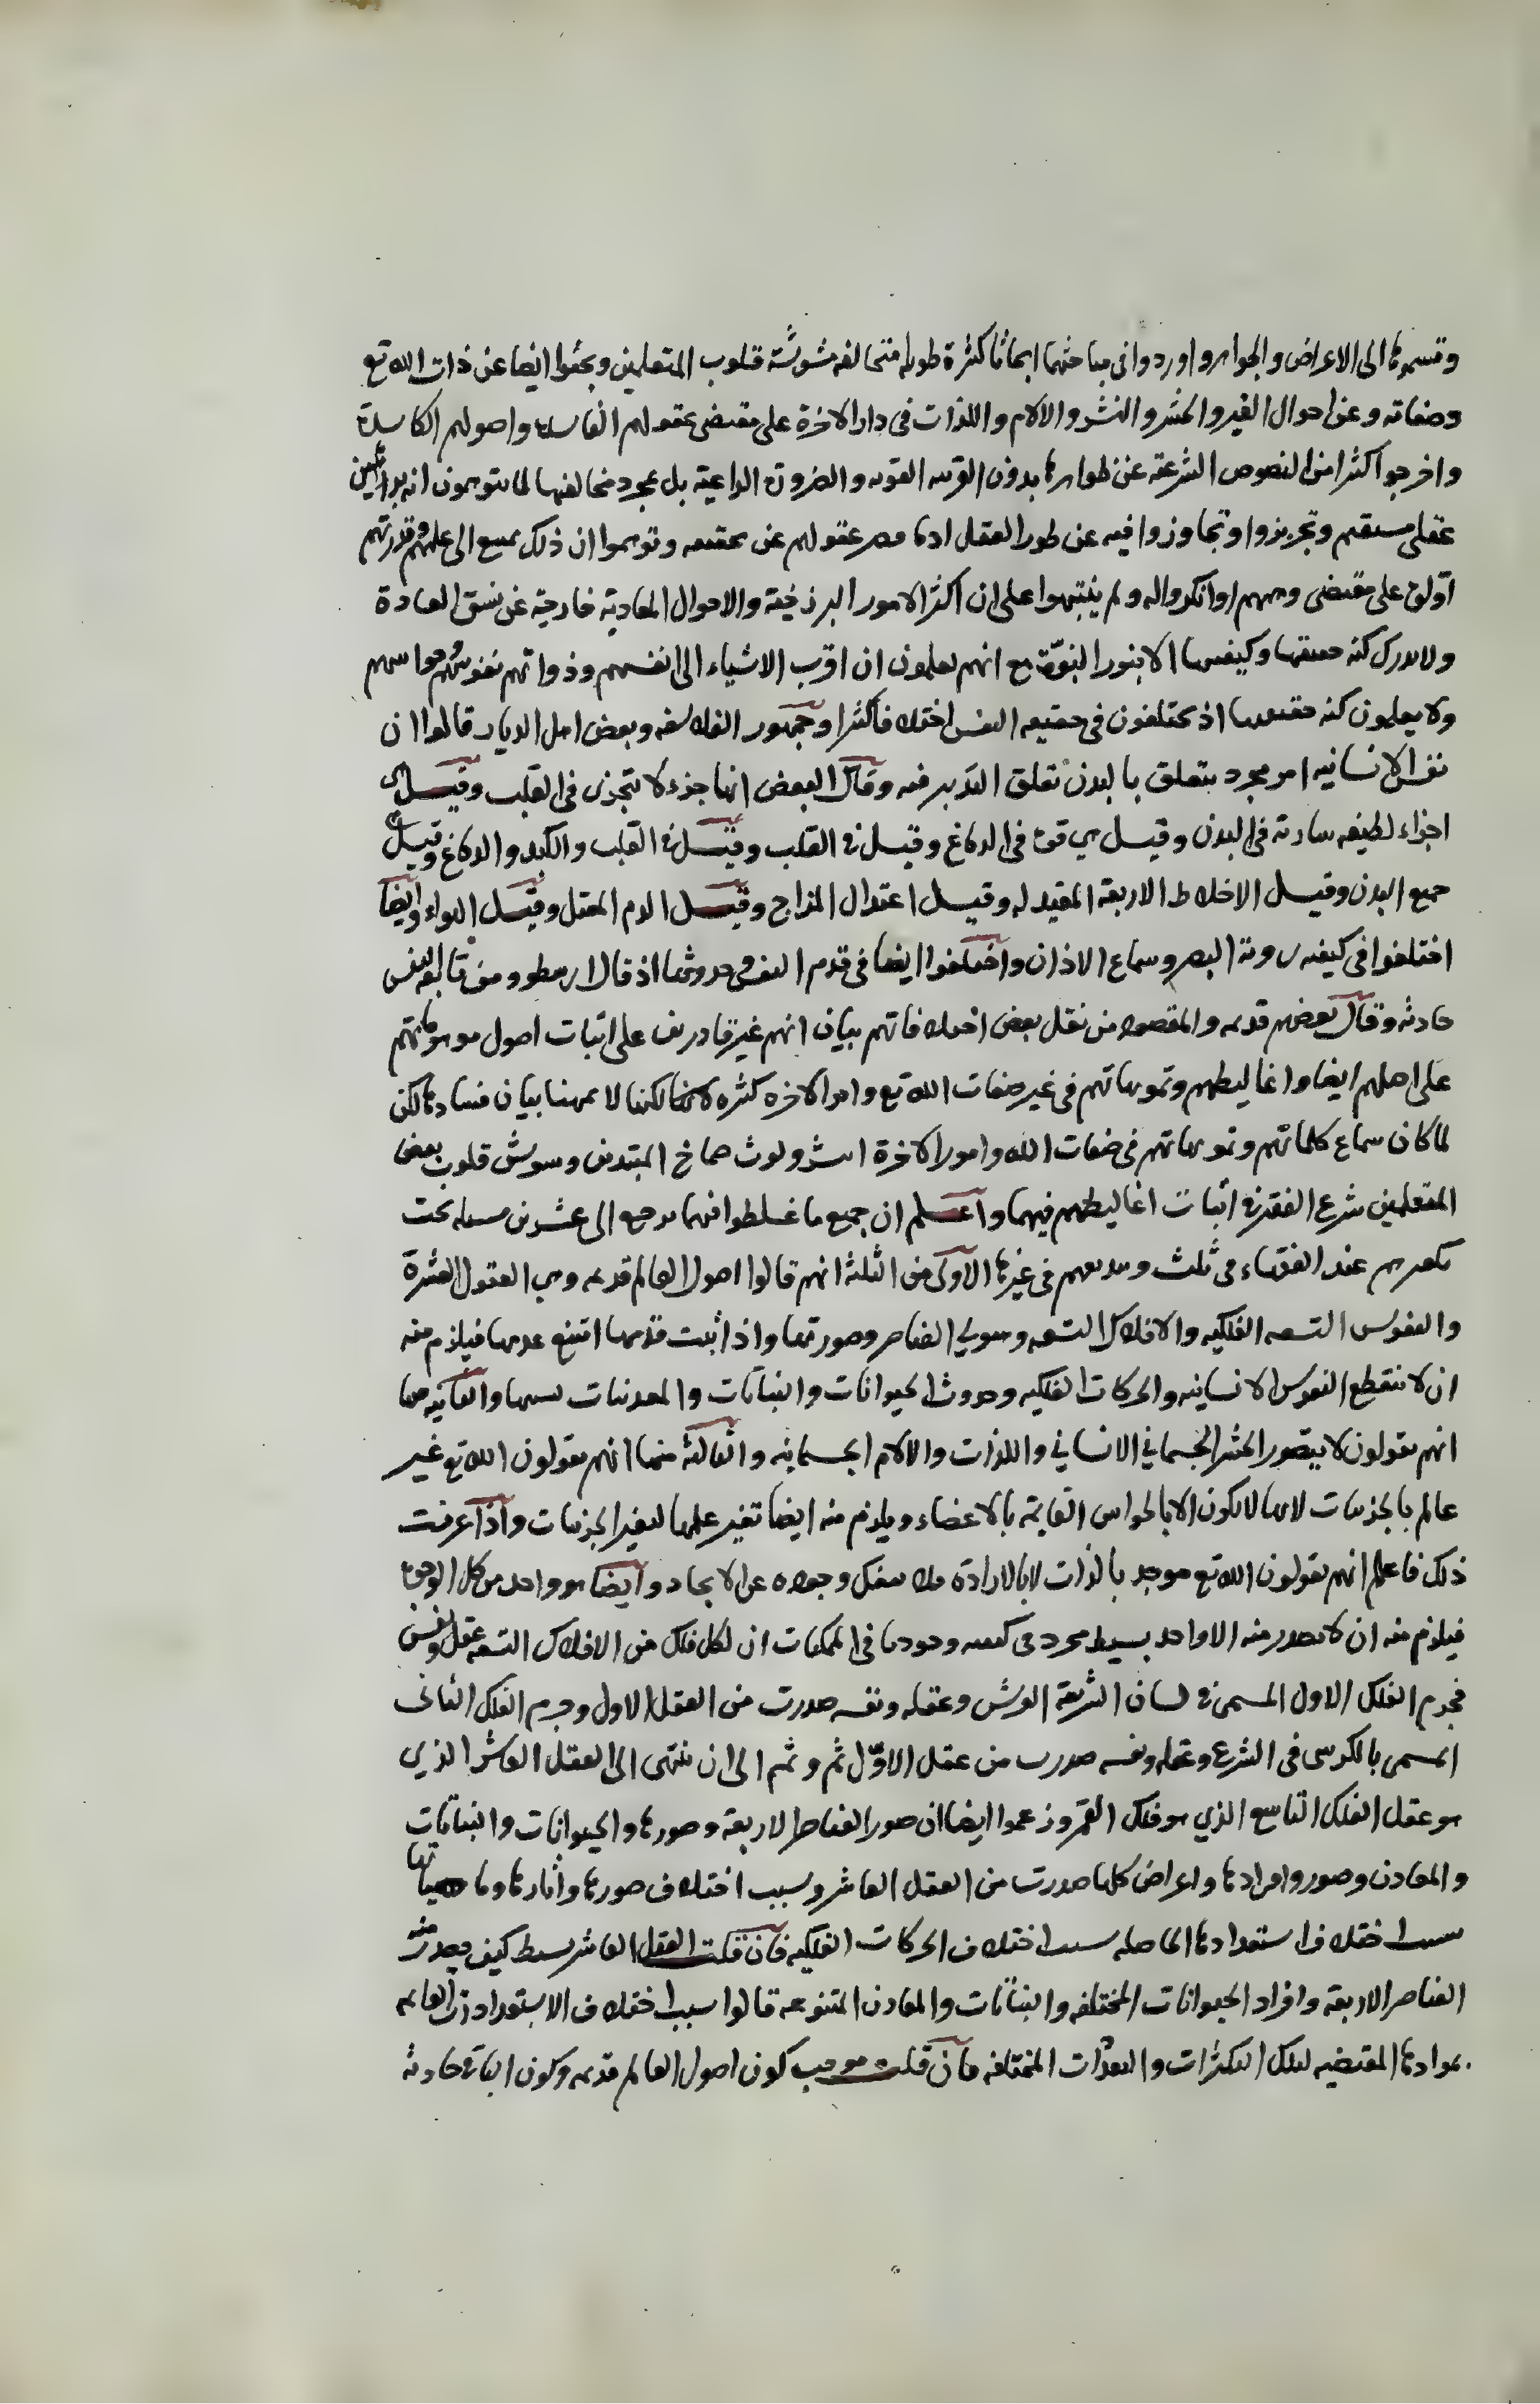 وقسموها الى الاعراض والجواهر واوردوا في مباحثهما ابحاثا كثيرة طويله متخالفه مشوشة قلوب المتعلمين وبحثوا ايضا عن ذات الله تع
وصفاته وعن احوال القبر والحشر والنشر والالام واللذات في دار الاخرة على مقتضى عقولهم الفاسده واصولهم الكاسدة
واخرجوا اكثرا من النصوص الشرعية عن ظواهرها بدون القرينه القويه والضرورة الداعية بل بمجرد مخالفتها لما يتوهمون انه براهين
عقلى مستقيم وتجاوزوا فيه عن طور العقل عقولهم عن حقيقته وتوهموا ان ذلك الى علمهم وقدرتهم
على مقتضى وهمهم وانكروا له ولم ينتبهوا على ان اكثر الامور البرزخية والاحوال المعادية خارجة عن نسق العادة
ولا يدرك كنه حقيقتها وكيفيتها الا بنور النبوّة مع انهم يعلمون ان اقرب الاشياء الى انفسهم وذواتهم نفوسهم وحواسهم
ولا يعلمون كنه حقيقتها اذ يختلفون في حقيقه النفس اختلافا كثيرا وجمهور الفلاسفه وبعض اهل الديار قالوا ان
نفس الانسانيه امر مجرد يتعلق بالبدن تعلق التدبير فيه وقال البعض انها جزء لا يتجزى في القلب وقيل هى
اجزاء لطيفه سارية في البدن وقيل هي قوة في الدماغ وقيل في القلب وقيل في القلب والكبد والدماغ وقيل
جميع البدن وقيل الاخلاط الاربعة المقيد له وقيل اعتدال المزاج وقيل الدم المعتدل وقيل الهواء وايضا
اختلفوا في كيفيه روية البصر وسماع الاذان واختلفوا ايضا في قدم النفس وحدوثها اذ قال ارسطو ومن تابعه النفس
حادثه وقال بعضهم قديمه والمقصود من نقل بعض اختلافاتهم بيان انهم غير قادرين على اثبات اصول موهوماتهم
على اصلهم ايضا واغاليطهم وتمويهاتهم في غير صفات الله تع وامر الاخره كثيره لكنها لا يهمنا بيان فسادها لكن
لما كان سماع كلماتهم وتمويهاتهم في صفات الله وامور الاخرة صماخ المبتدين ويشوش قلوب بعض
المتعلمين شرع الفقير في اثبات اغاليطهم فيهما واعلم ان جميع ما غلطوا فيها يرجع الى عشرين مسئله يجب
تكفيرهم عند الفقهاء في ثلث وتبديعهم في غيرها الاولى من الثلثة انهم قالوا اصول العالم قديمه وهي العقول العشرة
والنفوس التسعه الفلكيه والافلاك التسعه وهيولى العناصر وصورتها واذا ثبت قدمها امتنع عدمها فيلزم منه
ان لا ينقطع النفوس الانسانيه والحركات الفلكيه وحدوث الحيوانات والنباتات والمعدنيات والثانيه منها
انهم يقولون لا يتصور الحشر الجسماني الانساني واللذات والالام الجسمانيه والثالثة منها انهم يقولون الله تع غير
عالم بالجزئيات لانها لا يكون الا بالحواس القايمة بالاعضاء ويلزم منه ايضا تغير علمها لتغير الجزئيات واذا عرفت
ذلك فاعلم انهم يقولون الله تع موجد بالذات لا بالارادة فلا ينفك وجوده عن الايجاد وايضا هو واحد من كل الوجوه
فيلزم منه ان لا يصدر منه الا واحد بسيط مجرد في كيفيه وجودها في الممكنات ان لكل فلك من الافلاك التسعه عقل ونفس
فجرم الفلك الاول المسمى في لسان الشريعة العرش وعقله ونفسه صدرت من العقل الاول وجرم الفلك الثانى
المسمى بالكرسى في الشرع وعقله ونفسه صدرت من عقل الاوّل ثم وثم الى ان ينتهى الى العقل العاشر الذي
هو عقل الفلك التاسع الذي هو فلك القمر وزعموا ايضا ان صور العناصر الاربعة وصورها والحيوانات والنباتات
والمعادن وصور وافرادها واعراض كلها صدرت من العقل العاشر وسبب اختلاف صورها واثارها وماهياتها
سبب اختلاف استعدادها الحاصله بسبب اختلاف الحركات الفلكيه فان قلت العقل العاشر بسيط كيف يصدر منه
العناصر الاربعة وافراد الحيوانات المختلفه والنباتات والمعادن المتنوعه قالوا سبب اختلاف الاستعدادات القايمه
بموادها المقتضيه لتلك التكثرات والتعددات المختلفه فان قلت موجب كون اصول العالم قديمه وكون الباقي حادثة